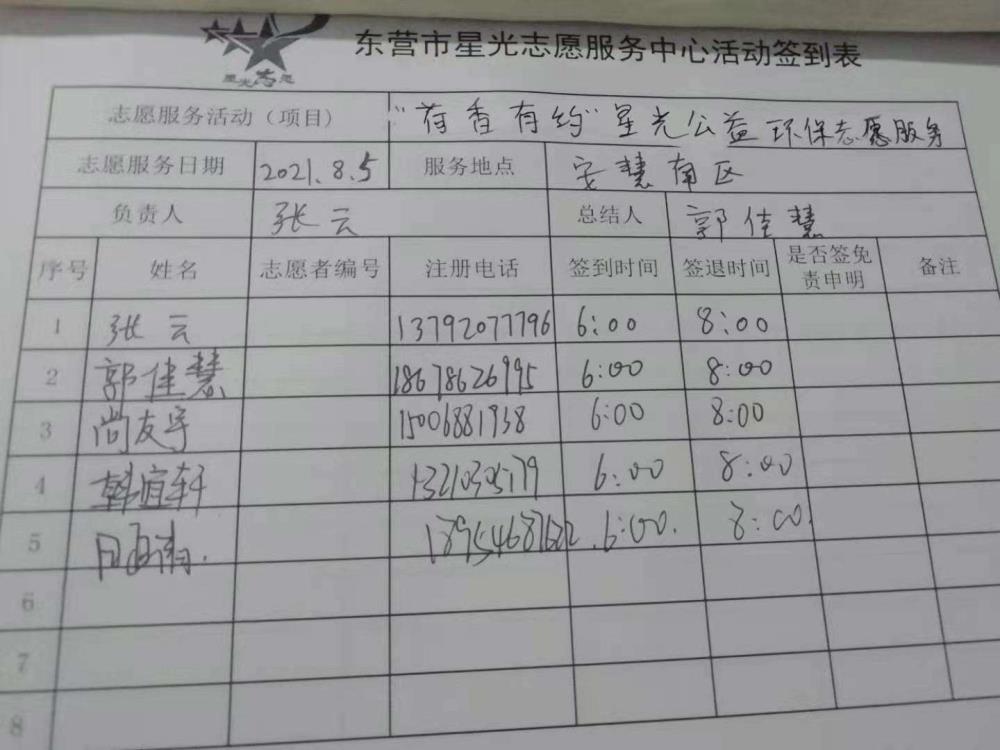 星光志愿
东营市星光志愿服务中心活动签到表
志愿服务活动（项目） “荷香有约”星光公益环保志愿服务
志愿服务日期 2021.8.5 服务地点 安慧南区
负责人 张云 总结人 郭佳慧
序号 姓名 志愿者编号 注册电话 签到时间 签退时间 是否签免责申明 备注
1 张云 13792077796 6:00 8:00
2 郭佳慧 18678626995 6:00 8:00
3 尚友宇 15006881938 6:00 8:00
4 韩宜轩 6:00 8:00
5 6:00. 8:00
6
7
8